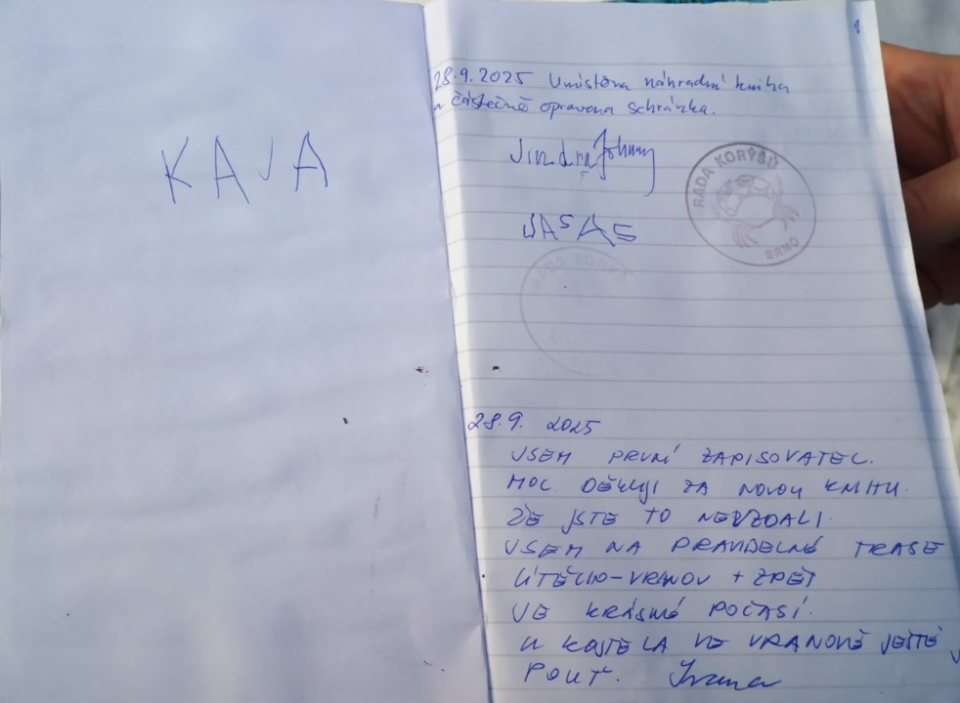 KAJA
1
28.9.2025 Umístěna náhradní kniha
a částečně opravena schránka.
Jindra Johnny
RADA KORÝŠŮ
BRNO
JASAS
RADA KORÝŠŮ
28.9. 2025
JSEM PRVNÍ ZAPISOVATEL.
MOC DĚKUJI ZA NOVOU KNIHU.
ŽE JSTE TO NEVZDALI.
JSEM NA PRAVIDELNÉ TRASE
ÚTĚCHO-VRANOV + ZPĚT
VE KRÁSNÉ POČASÍ.
U KOSTELA VE VRANOVĚ JEŠTĚ
POUŤ. Ivana